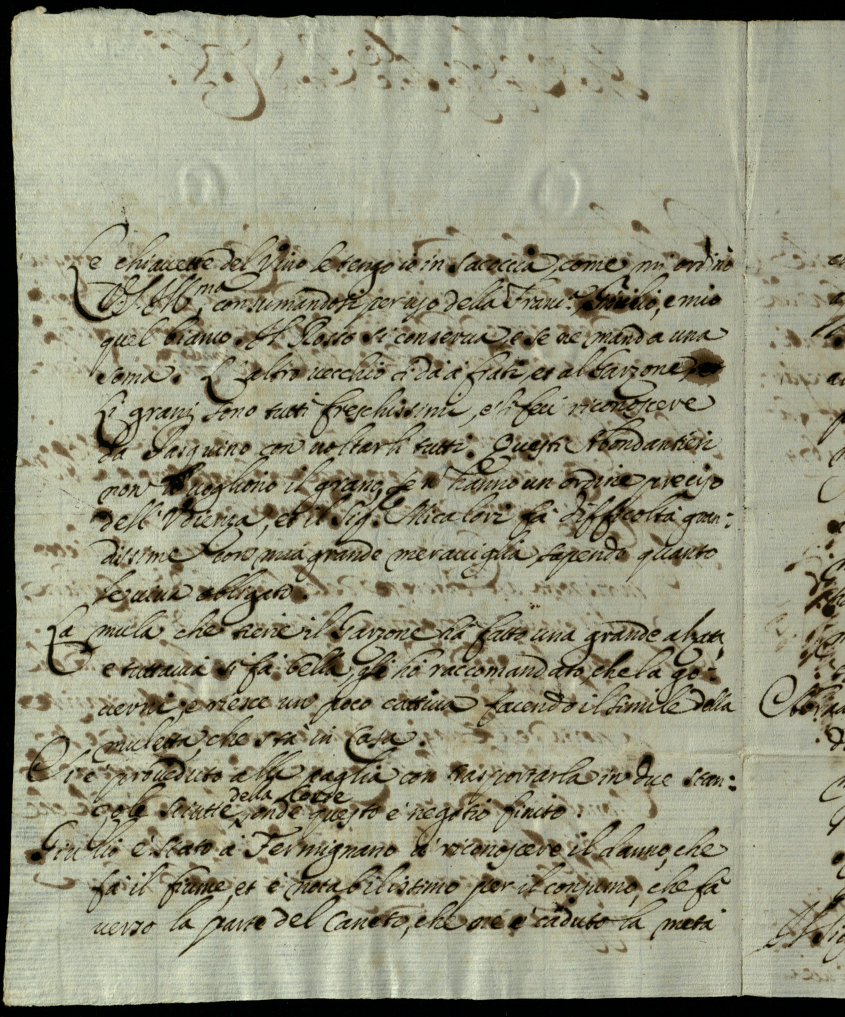 Le chiavette del Vino le tengo io in saccoccia, come mi ordinò
V.S. Ill.ma, consumandosi per uso della Franc.a Emilio, e mio
quel bianco. Il Rosso si conserva, e se ne manda una
soma. L'altro vecchio si dà a frati, et al Garzone
Li grani sono tutti freschissimi, e li feci riconoscere
da Pasquino con voltarli tutti. Questi Abondantieri
non vogliono il grano se n' hanno un ordine preciso
dell' Udienza, et il Sig.r Micalori fà difficoltà gran:
dissime con mia grande meraviglia, sapendo quanto
le viva obligato.
La mula che tiene il Garzone hà fatto una grande alzata
e tuttavia si fà bella, gli hò raccomandato, che la go:
verni, e riesce un poco cattiva facendo il simile della
muletta che stà in Casa.
Si è proveduto alla paglia con trasportarla in due stan:
della Corte
onde questo è negotio finito.
Giulio è stato à Fermignano à riconoscere il danno, che
fà il fiume, et è notabilissimo per il consumo, che fà
verso la parte del Caneto, che ne è caduto la metà